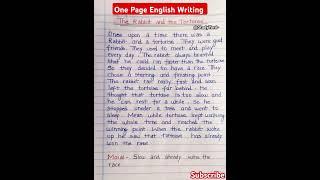 One Page English Writing
The Rabbit and the Tortoise
Once upon a time there was a
Rabbit and a tortoise. They were good
friends. They used to meet and play
every day. The rabbit always boasted
that he could run faster than the tortoise
So they decided to have a race. They
chose a starting and finishing point.
The rabbit ran really fast and soon
left the tortoise far behind. He
thought that tortoise is too slow and
he can rest for a while. So he
stopped under a tree and went to
sleep. Mean while tortoise kept walking
the whole time and reached the
winning point. When the rabbit woke
up he saw that tortoise has already
won the race.
Moral- Slow and steady wins the
race
Subscribe